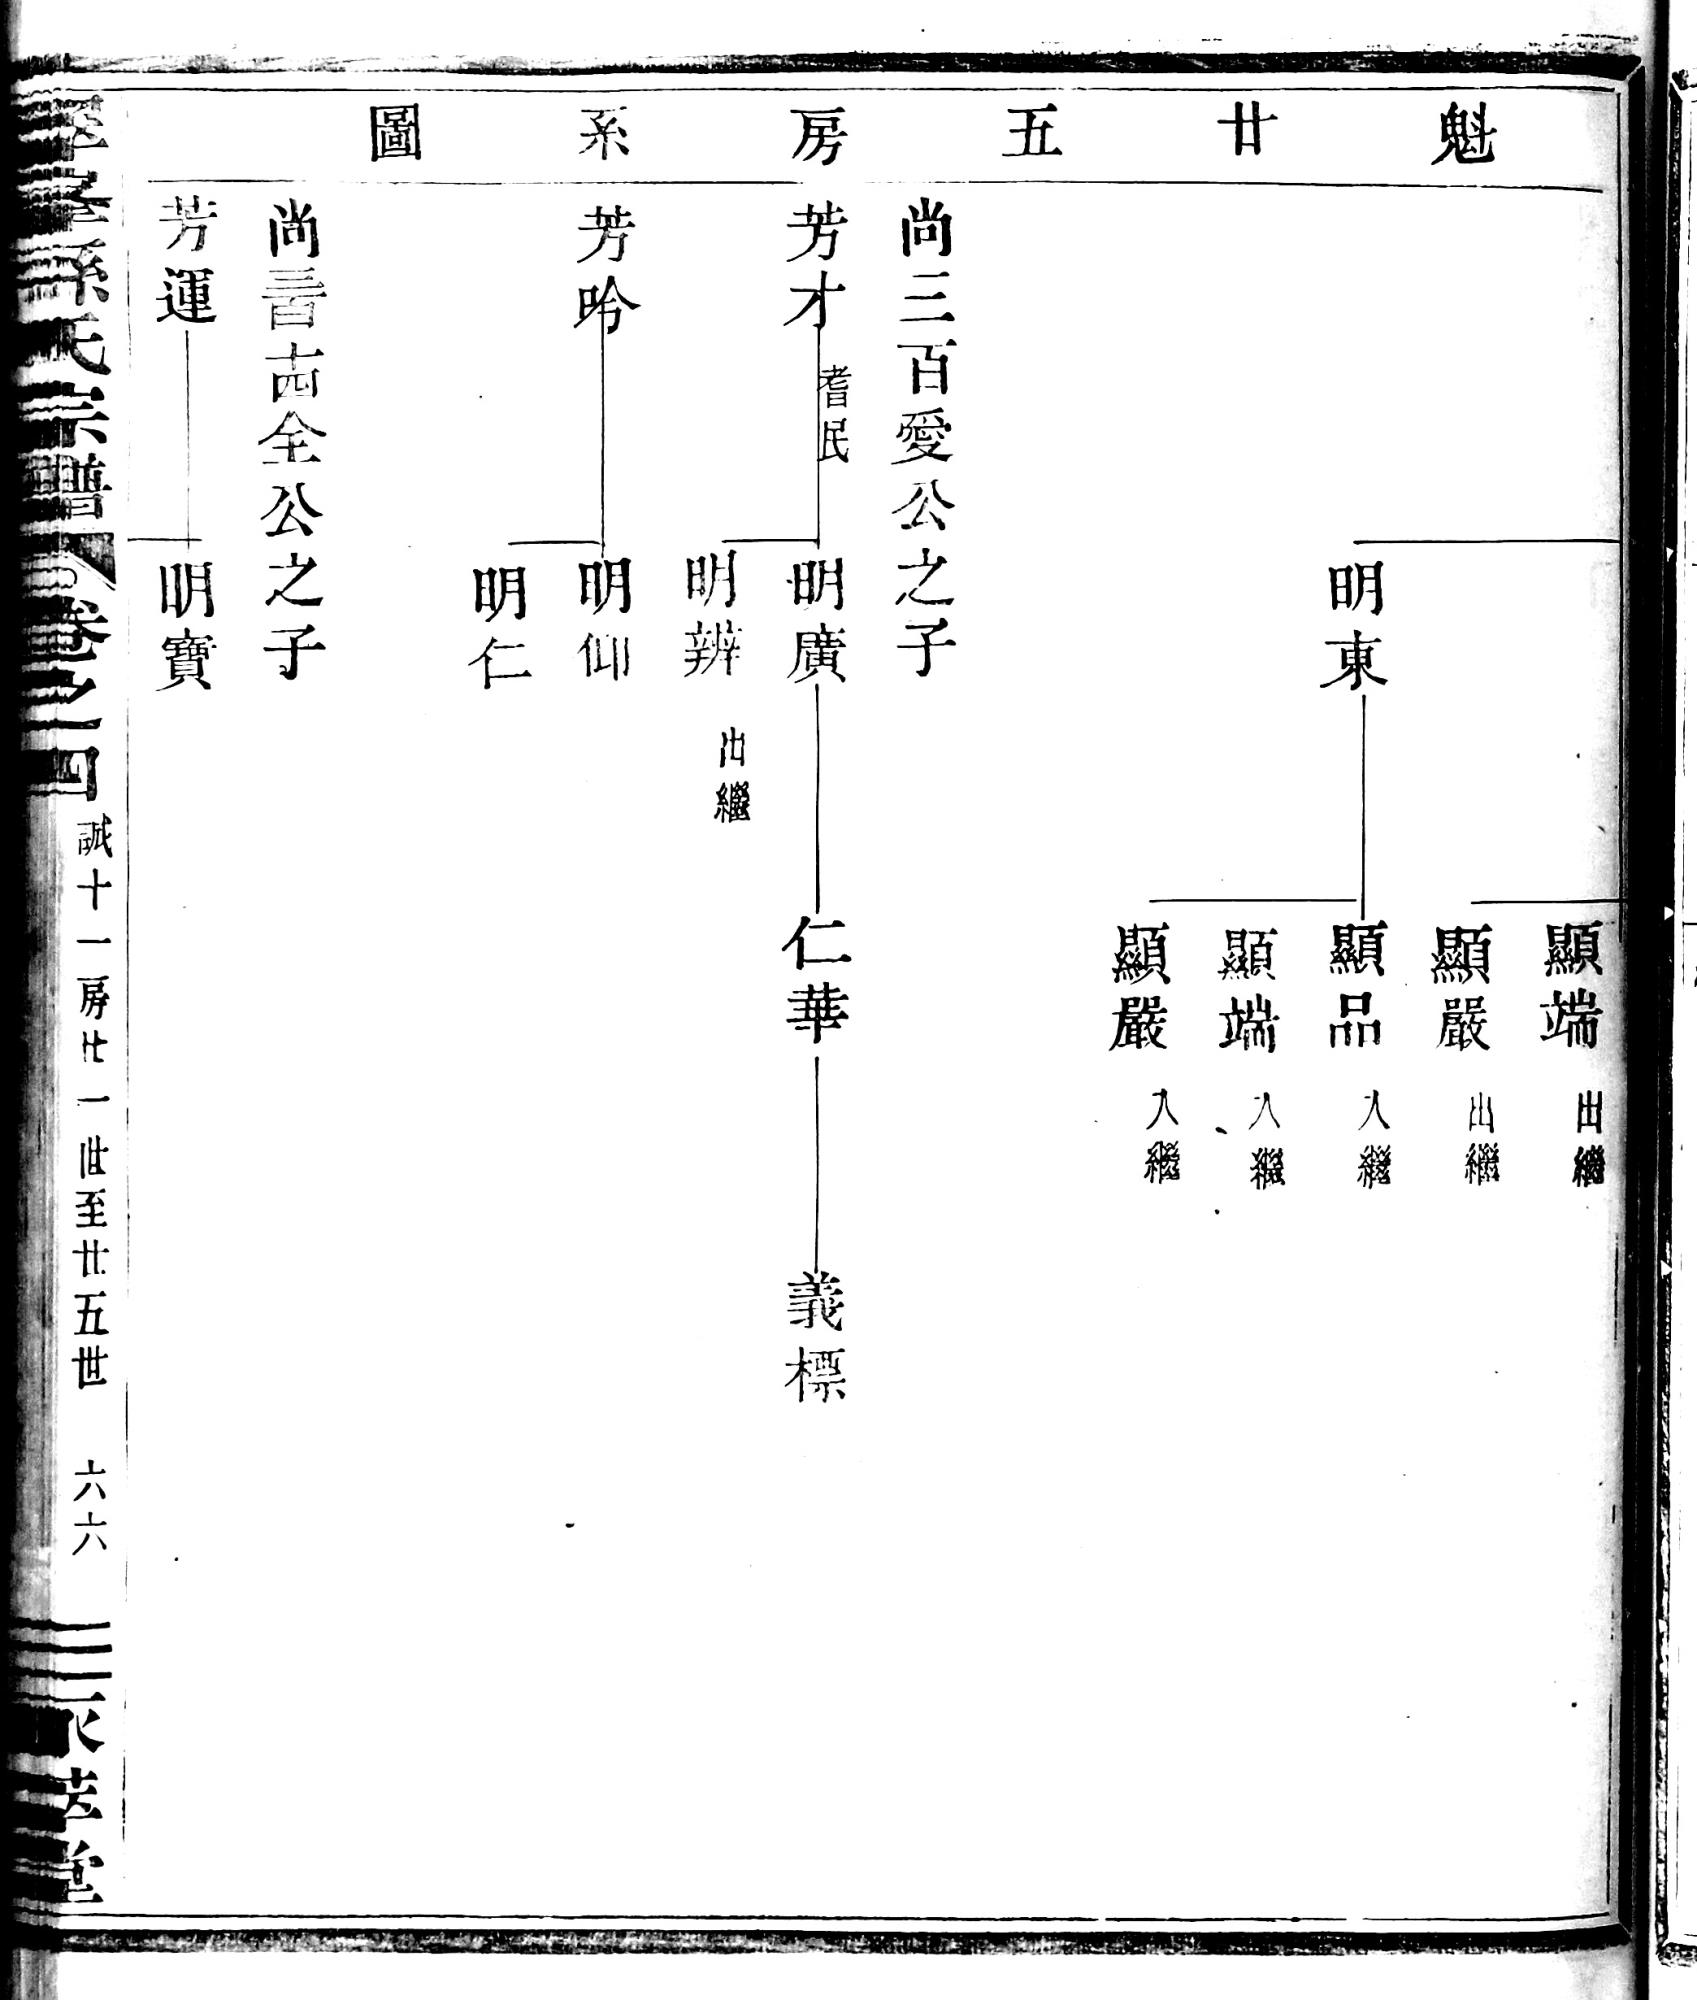 魁廿五房系圖
顯端 出繼
顯嚴 出繼
明東
顯品 入繼
顯端 入繼
顯嚴 入繼
尚三百愛公之子
芳才 耆民
明廣
仁華
義標
明辨 出繼
芳吟
明仰
明仁
公之子
芳運
明寶
孫氏宗譜 卷之四 誠十一房廿一世至廿五世 六六 堂